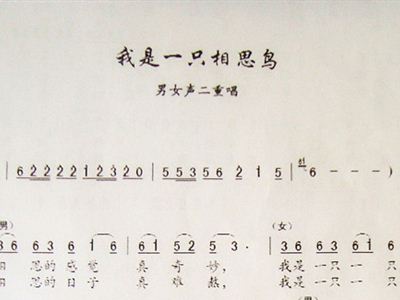 我是一只相思鸟
男女声二重唱
6 2 2 2 2 1 2 3 2 0 | 5 5 3 5 6 2 1 5 | 6 - - - |
(女)
3 6 6 3 6 6 1 6 | 6 1 5 2 5 3 | 3 6 6 3 6
思的感觉 真奇妙, 我是一只一只
思的日子 真难熬, 我是一只一只